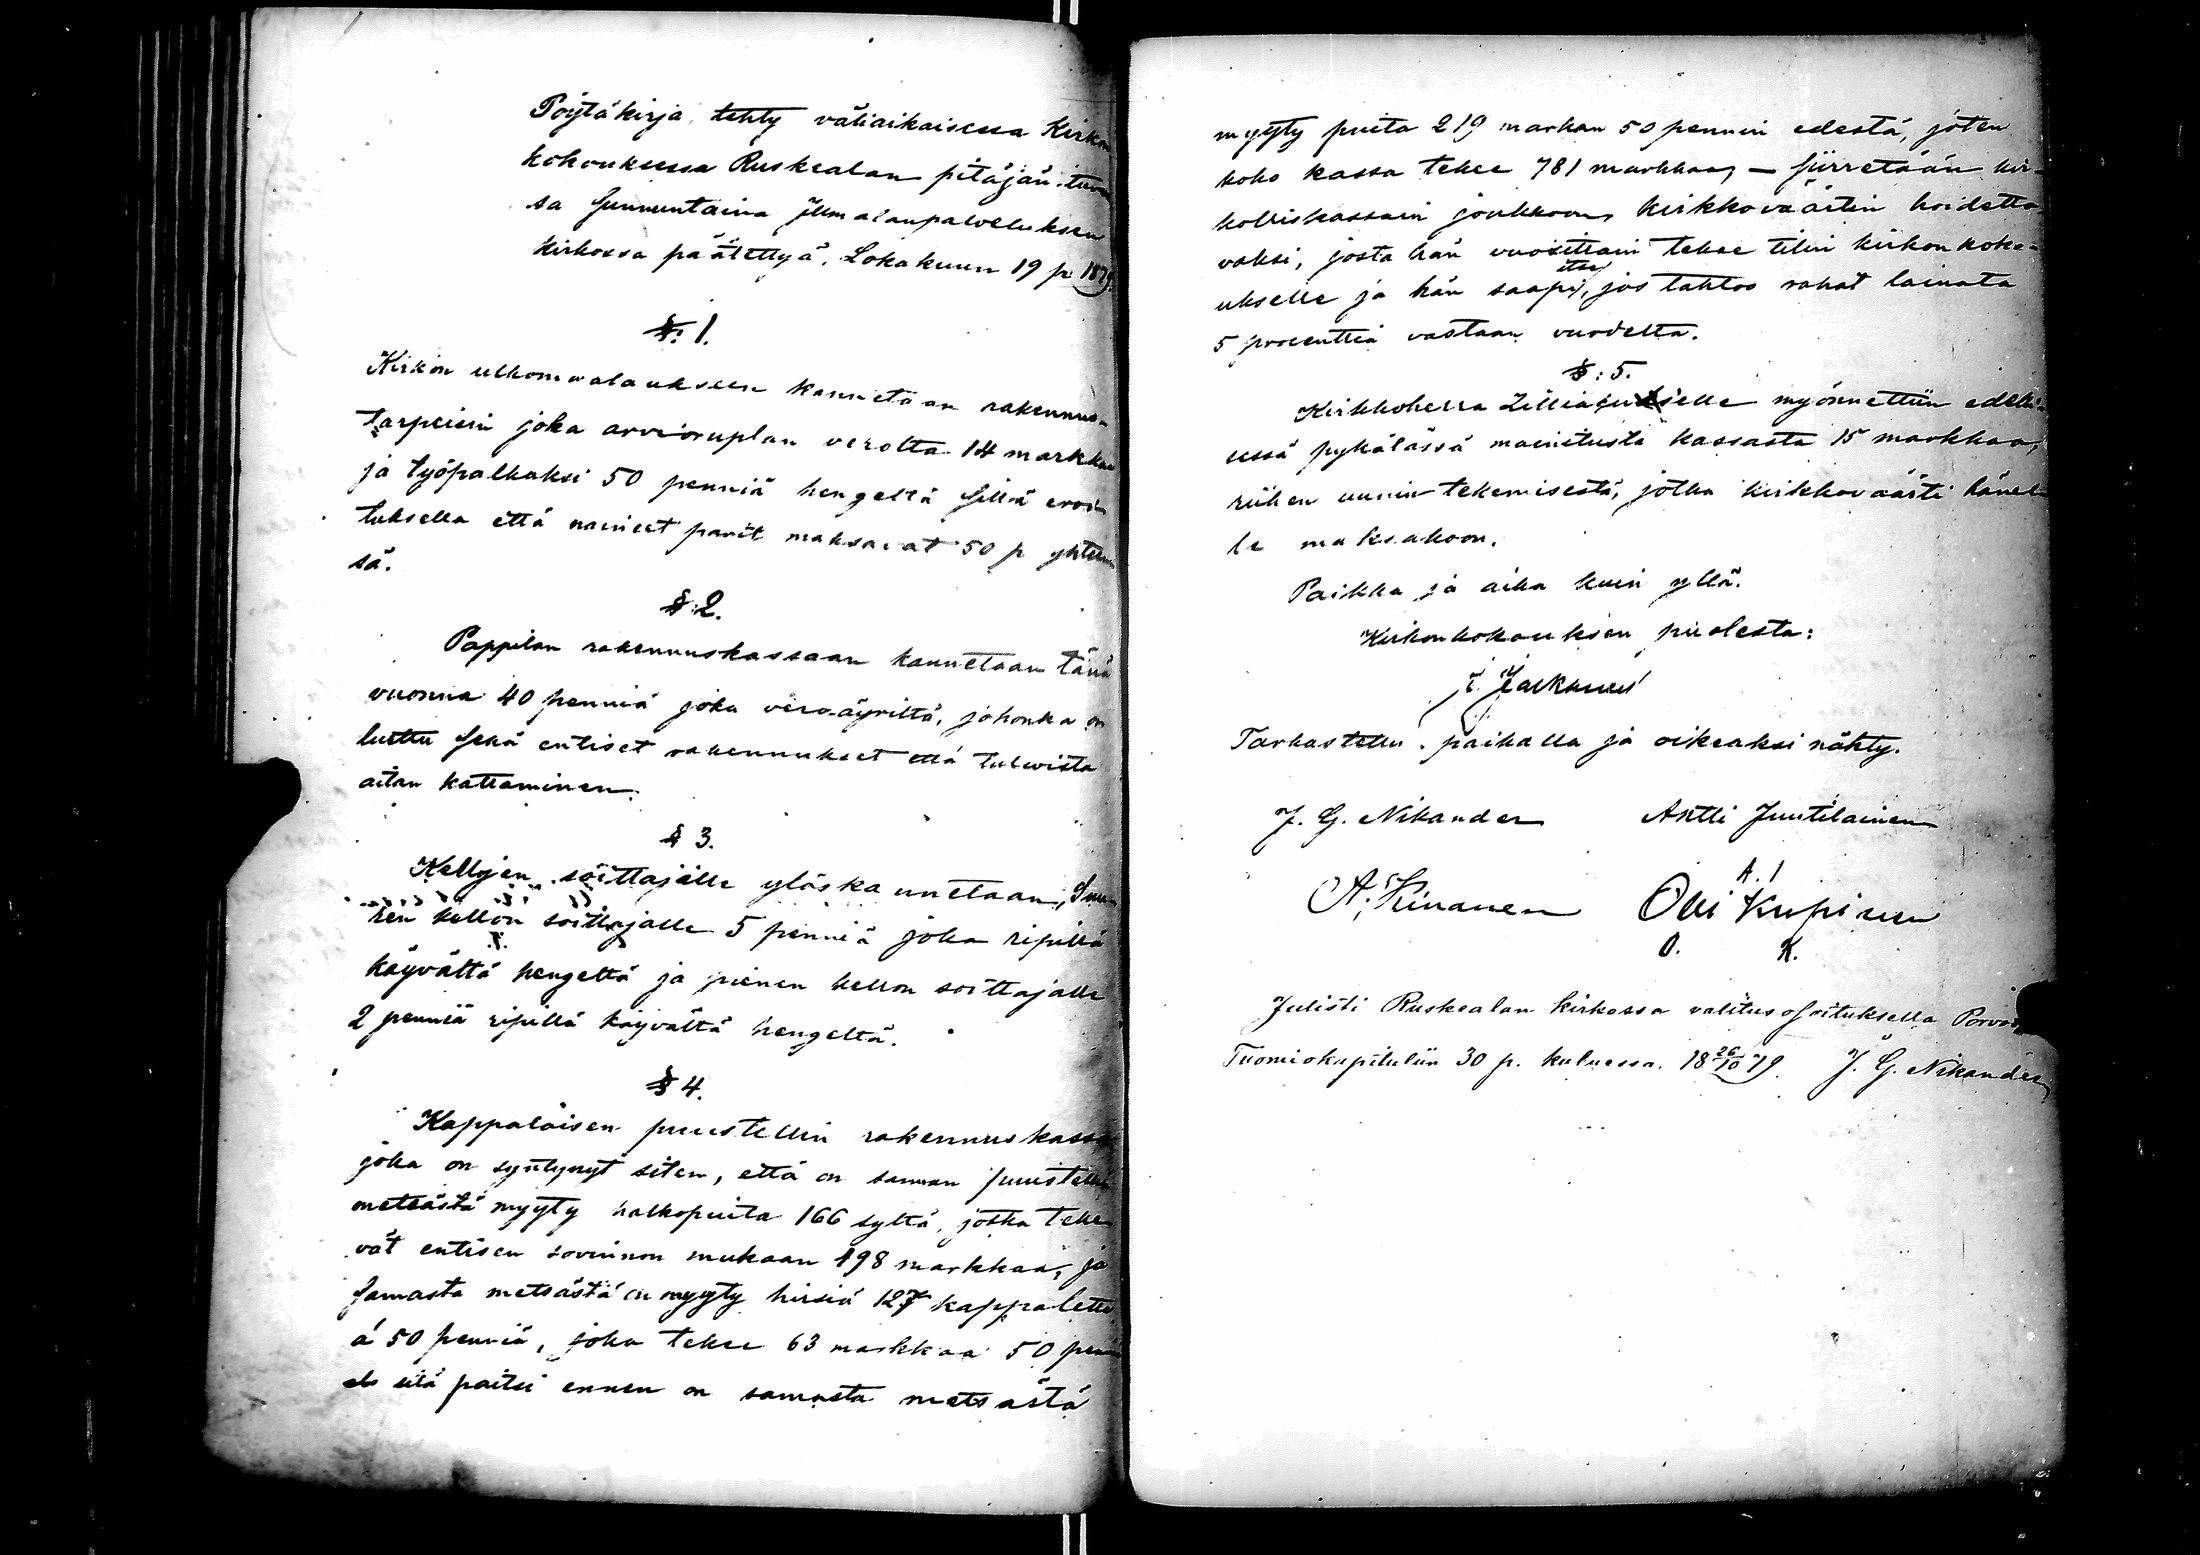 Pöytäkirja, tehty väliaikaisessa Kirkon
kokouksessa Ruskealan pitäjän tuvas
sa Sunnuntaina Jumalanpalveluksen
kirkossa päätettyä, Lokakuun 19 p 1879.
§: 1.
Kirkon ulkomaalaukseen kannetaan rakennus
tarpeisin joka arvioruplan verolta 14 markkaa
ja työpalkaksi 50 penniä hengeltä sillä eroi
tuksella että naineet parit maksavat 50 p yhteen
sä.
§: 2.
Pappilan rakennuskassaan kannetaan tänä
vuonna 40 penniä joka veroäyriltä, johonka on
luettu sekä entiset rakennukset että tulevista
aitan kattaminen.
§ 3.
Kellojen soittajille ylöskannetaan, Suu
ren kellon soittajalle 5 penniä joka ripillä
käyvältä hengeltä ja pienen kellon soittajalle
2 penniä ripillä käyvältä hengeltä.
§ 4.
Kappalaisen puustellin rakennuskassa
joka on syntynyt siten, että on saman puustellin
metsästä myyty halkopuita 166 syltä, jotka teke
vät entisen sovinnon mukaan 498 markkaa, ja
samasta metsästä on myyty hirsiä 127 kappaletta
á 50 penniä, joka tekee 63 markkaa 50 penniä
sitä paitsi ennen on samasta metsästä
myyty puita 219 markan 50 pennin edestä, joten
koko kassa tekee 781 markkaa, — siirretään kir-
kolliskassain joukkoon, kirkkoväärtin hoidetta
vaksi, josta hän vuosittain tekee tilin kirkonkoko-
ukselle ja hän saapi itse, jos tahtoo rahat lainata
5 procenttia vastaan vuodelta.
§: 5.
Kirkkoherra selle myönnettiin edelli
sessä pykälässä mainitusta kassasta 15 markkaa,
riihen uunin tekemisestä, jotka kirkkoväärti hänel
le maksakoon.
Paikka ja aika kuin yllä.
Kirkonkokouksen puolesta:
Tarkastettu paikalla ja oikeaksi nähty.
J. G. Nikander Antti Juutilainen
A. J.
A. Kinanen Olli Kupinen
O. K.
Julisti Ruskealan kirkossa valitusosoituksella Porvoon
Tuomiokapituliin 30 p. kuluessa. 18 26/10 79. J. G. Nikander